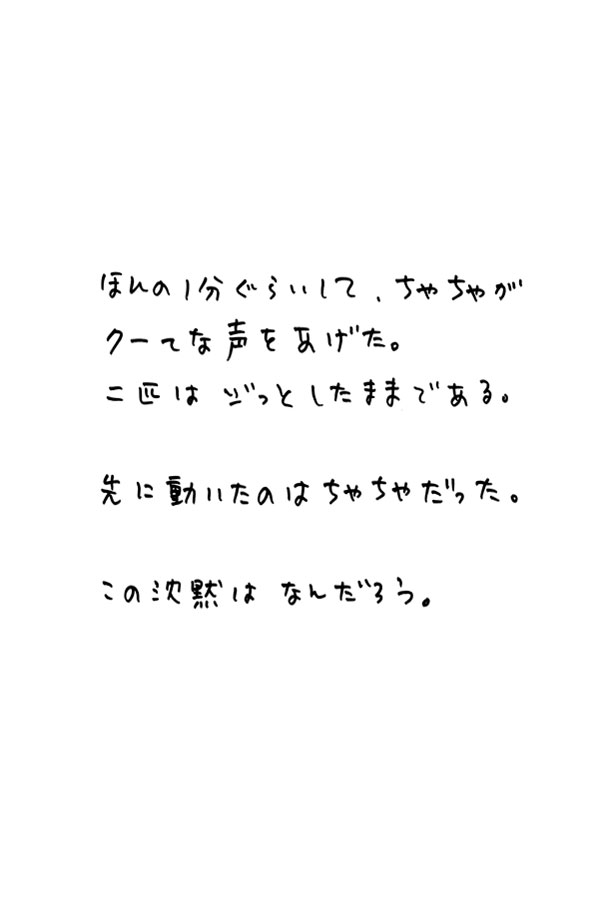 ほんの1分ぐらいして、ちゃちゃが
クーてな声をあげた。
二匹は じっとしたままである。
先に動いたのはちゃちゃだった。
この沈黙は なんだろう。